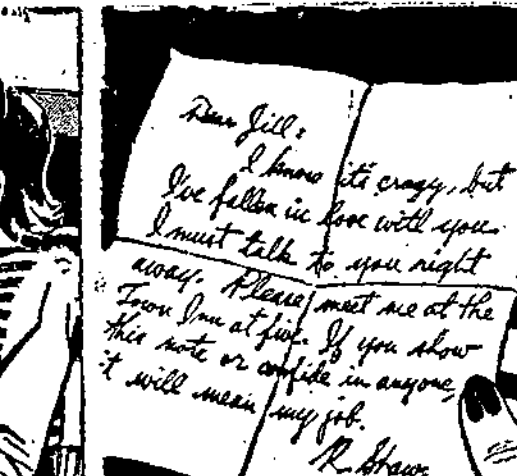 Dear Jill:
I know it's crazy, but
I've fallen in love with you.
I must talk to you right
away. Please meet me at the
Town Inn at five. If you show
this note or confide in anyone,
it will mean my job.
R. Shaw